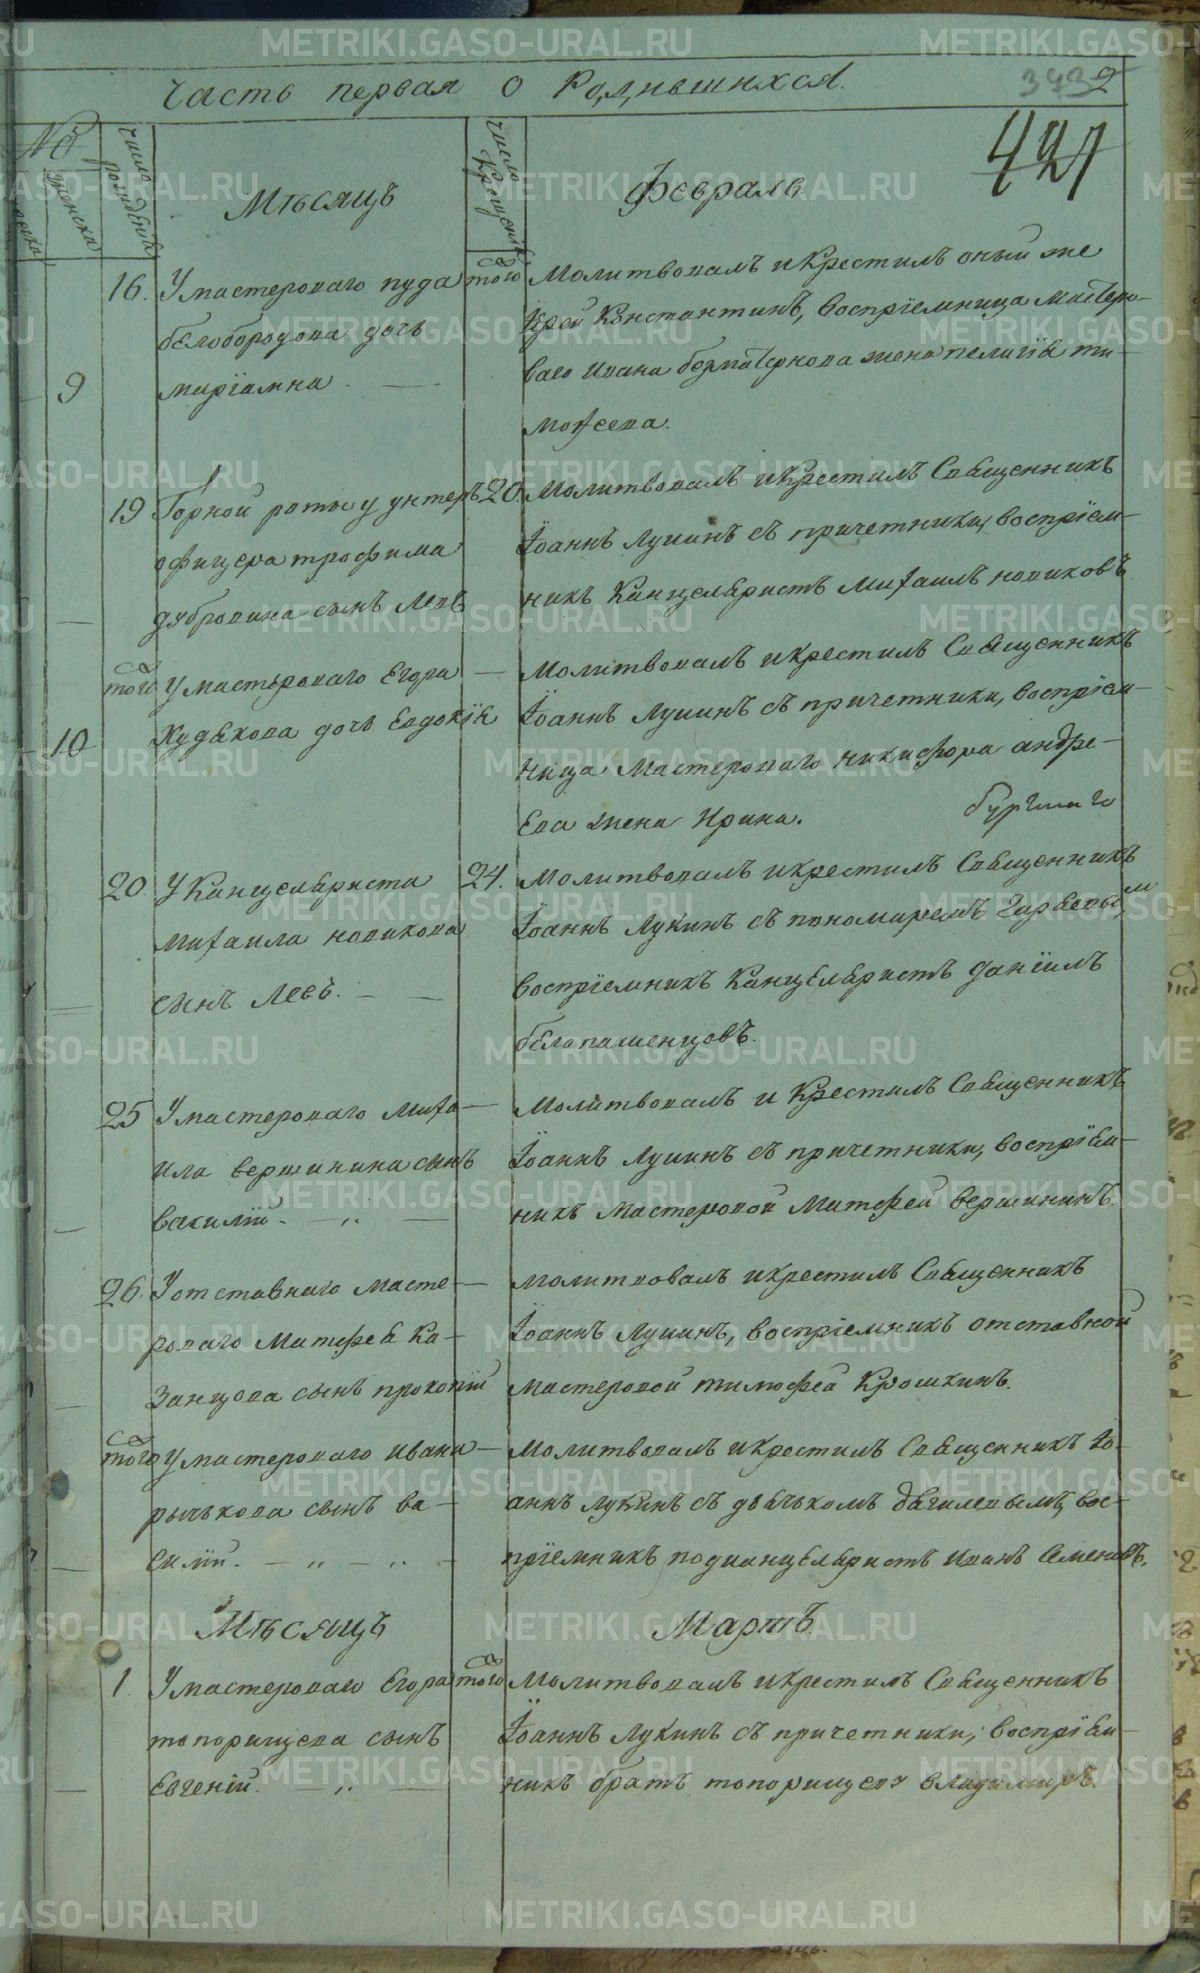 Часть первая о Родившихся.
3732
427
№
женска
число рождѣнія
число Крещенія
Мѣсяцъ Февраль
16. У мастероваго пуда
белобородова дочь
9 маріамна.
того Молитвовалъ и Крестилъ оный же
Іерей Константинъ, воспріемница Мастеро-
ваго Ивана безматернова жена пелагія ти-
мофеева.
19 Горной роты у унтеръ
офицера трофима
дубровина сынъ Левъ
20. Молитвовалъ и Крестилъ Священникъ
Іоаннъ Лукинъ съ причетники, воспріем-
никъ Канцеляристъ Михаилъ новиковъ
того У мастероваго Егора
10 Худякова дочь Евдокія
Молитвовалъ и крестилъ Священникъ
Іоаннъ Лукинъ съ причетники, воспріем-
ница Мастероваго никифора андре-
Ева жена Ирина.
20. У Канцеляриста
Михаила новикова
сынъ Левъ.
24. Молитвовалъ и крестилъ Священникъ
Іоаннъ Лукинъ съ пономаремъ
воспріемникъ Канцеляристъ даніилъ
белопашенцовъ.
25 У мастероваго Миха-
ила вершинина сынъ
василій.
Молитвовалъ и Крестилъ Священникъ
Іоаннъ Лукинъ съ причетники, воспріем-
никъ Мастеровой Матфей вершининъ.
26. У отставнаго масте-
роваго Матфея Ка-
занцова сынъ прокопій
Молитвовалъ и крестилъ Священникъ
Іоаннъ Лукинъ, воспріемникъ отставной
мастеровой тимофей Крошкинъ.
того У мастероваго ивана
рычкова сынъ ва-
силій.
Молитвовалъ и Крестилъ Священникъ Іо-
аннъ Лукинъ съ дьячкомъ дягилевымъ, вос-
пріемникъ подканцеляристъ Иванъ Семеновъ.
Мѣсяцъ Мартъ
1. У мастероваго Егора
топорищева сынъ
Евгеній.
того Молитвовалъ и крестилъ Священникъ
Іоаннъ Лукинъ съ причетники, воспріем-
никъ братъ топорищевъ владимиръ.
METRIKI.GASO-URAL.RU